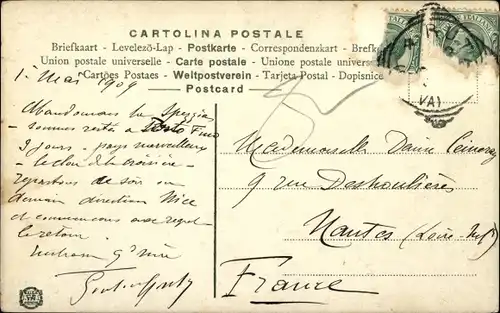 CARTOLINA POSTALE
Briefkaart - Levelező-Lap - Postkarte - Correspondenzkart - Brefko
Union postale universelle - Carte postale - Unione postale universa
Cartões Postaes - Weltpostverein - Tarjeta Postal - Dopisnice
Postcard
1 Mai 1909
Abandonnons la Spezzia
sommes restés à Porto Fino
3 jours - pays merveilleux
le clou de la croisière -
repartons ce soir ou
demain direction Nice
et commençons avec regret
le retour.
Mademoiselle
9 rue Deshoulières
Nantes (Loire Inf)
France